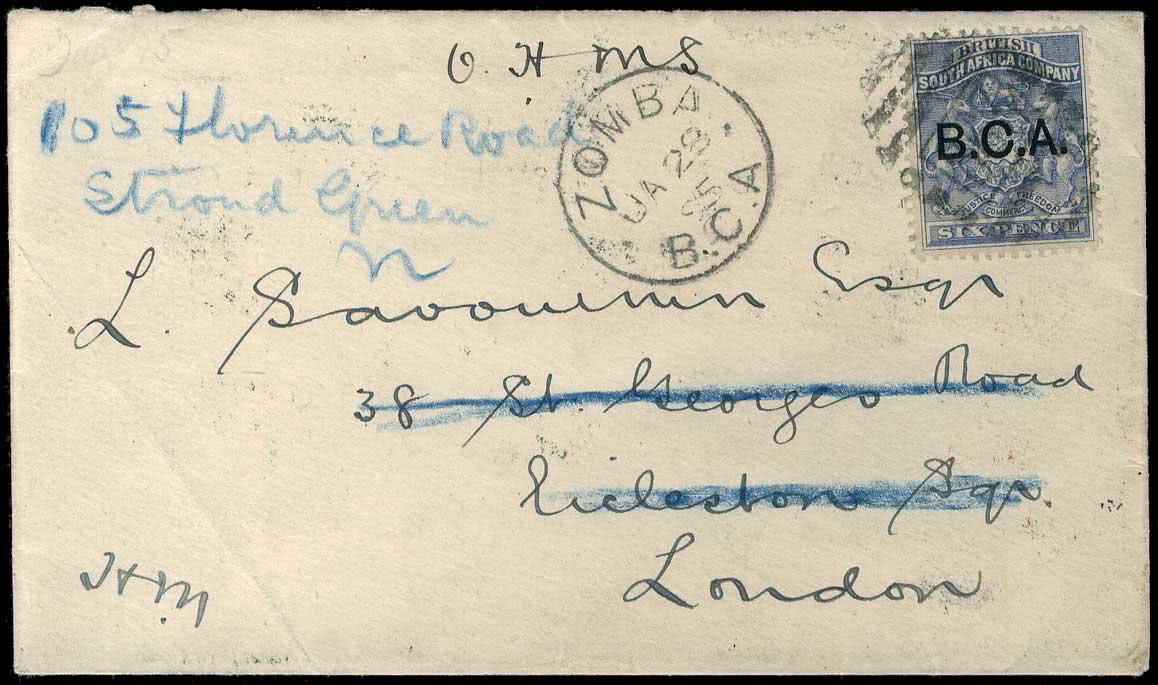 O. H M S
BRITISH
SOUTH AFRICA COMPANY
B.C.A.
JUSTICE
COMMERCE
FREEDOM
SIX PENCE
ZOMBA.
JA 28
95
B.C.A
105 Florence Road
Stroud Green
N
L. Esqr
38 St. Georges Road
Eccleston Sqr.
London
HM